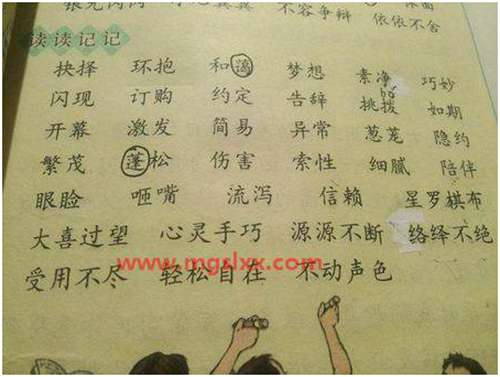 不容争辩
依依不舍
读读记记
抉择 环抱 和蔼 梦想 素净 巧妙
闪现 订购 约定 告辞 挑拨 如期
bō
开幕 激发 简易 异常 葱茏 隐约
繁茂 蓬松 伤害 索性 细腻 陪伴
眼睑 咂嘴 流泻 信赖 星罗棋布
大喜过望 心灵手巧 源源不断 络绎不绝
www.mgslxx.com
受用不尽 轻松自在 不动声色